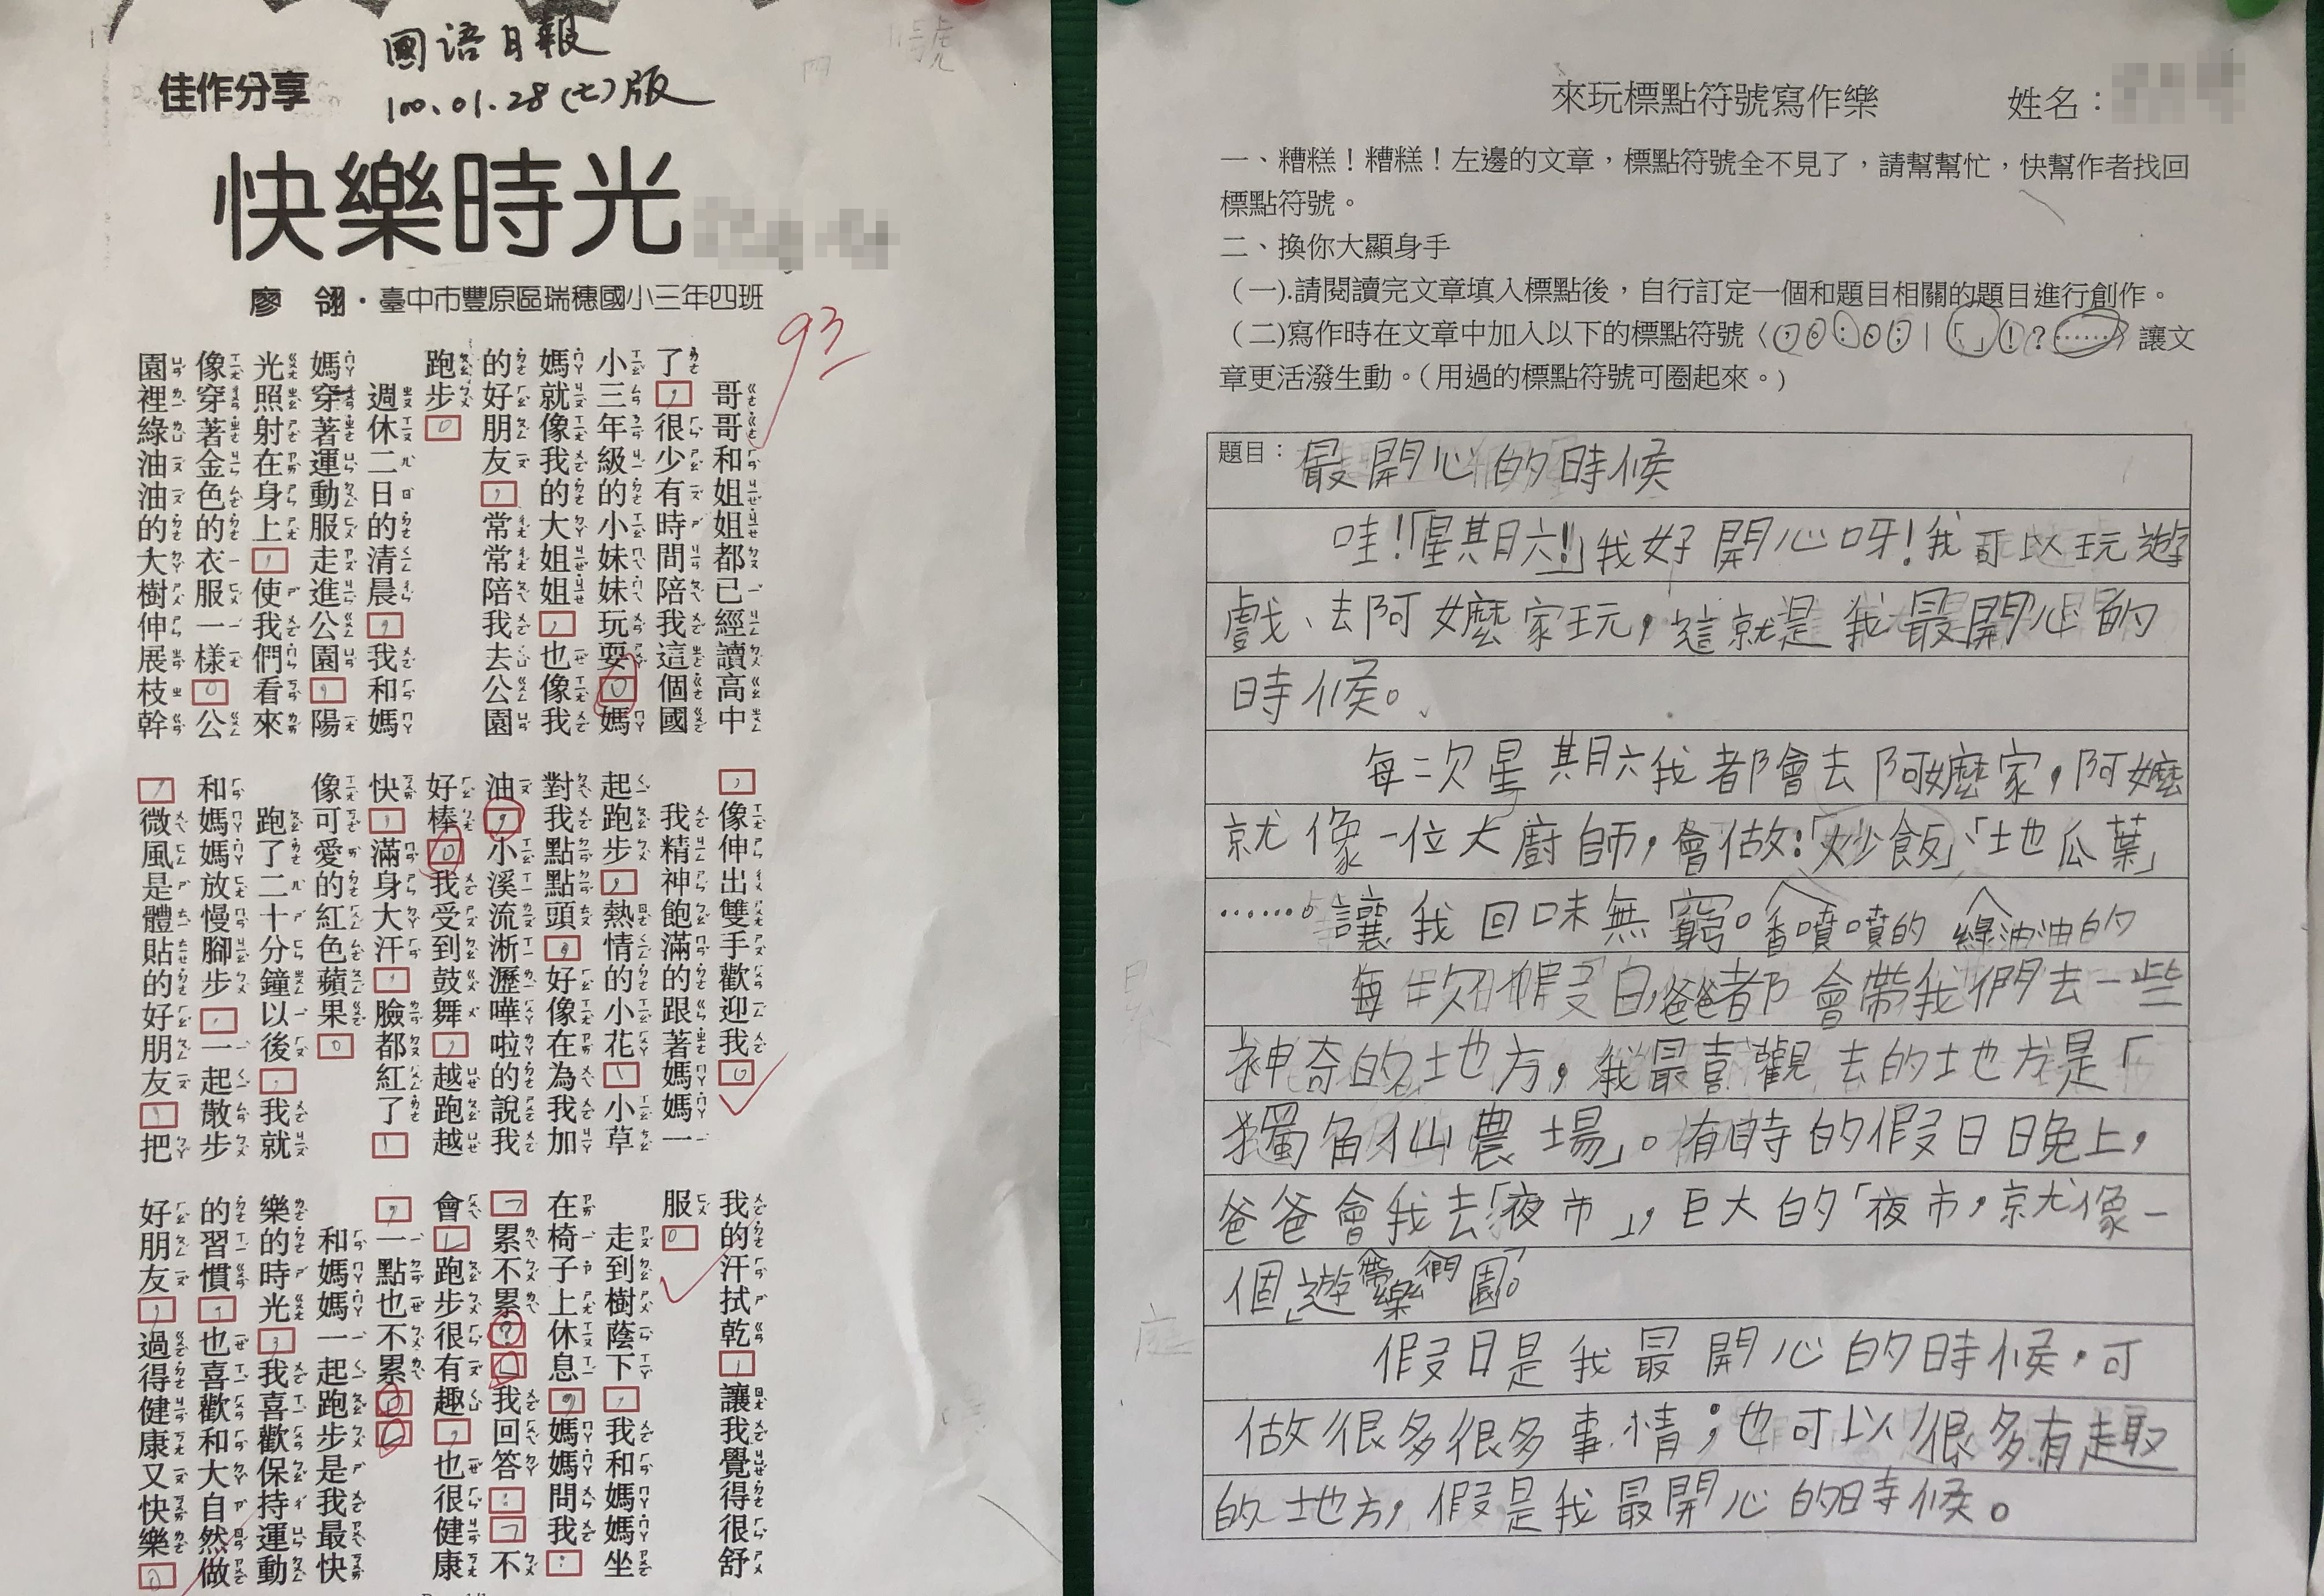 國語日報
100.01.28(七)版
佳作分享
快樂時光
廖翎・臺中市豐原區瑞穗國小三年四班
93
哥哥和姐姐都已經讀高中
了，很少有時間陪我這個國
小三年級的小妹妹玩耍。媽
媽就像我的大姐姐，也像我
的好朋友，常常陪我去公園
跑步。
週休二日的清晨，我和媽
媽穿著運動服走進公園，陽
光照射在身上，使我們看來
像穿著金色的衣服一樣。公
園裡綠油油的大樹伸展枝幹
，像伸出雙手歡迎我。
我精神飽滿的跟著媽媽一
起跑步，熱情的小花、小草
對我點點頭，好像在為我加
油，小溪流淅瀝嘩啦的說我
好棒。我受到鼓舞，越跑越
快，滿身大汗，臉都紅了，
像可愛的紅色蘋果。
跑了二十分鐘以後，我就
和媽媽放慢腳步，一起散步
，微風是體貼的好朋友，把
我的汗拭乾，讓我覺得很舒
服。
走到樹蔭下，我和媽媽坐
在椅子上休息，媽媽問我：
「累不累？」我回答：「不
會，跑步很有趣，也很健康
，一點也不累。」
和媽媽一起跑步是我最快
樂的時光，我喜歡保持運動
的習慣，也喜歡和大自然做
好朋友，過得健康又快樂。
來玩標點符號寫作樂 姓名：
一、糟糕！糟糕！左邊的文章，標點符號全不見了，請幫幫忙，快幫作者找回
標點符號。
二、換你大顯身手
（一).請閱讀完文章填入標點後，自行訂定一個和題目相關的題目進行創作。
（二)寫作時在文章中加入以下的標點符號〈，。：、；｜「」！？……〉讓文
章更活潑生動。（用過的標點符號可圈起來。)
題目：最開心的時候
哇！「星期六！」我好開心呀！我可以玩遊
戲、去阿嬤家玩，這就是我最開心的
時候。
每次星期六我都會去阿嬤家，阿嬤
就像一位大廚師，會做：「炒飯」、「地瓜葉」
……。讓我回味無窮。香噴噴的 綠油油的
每次假日，爸爸都會帶我們去一些
神奇的地方，我最喜觀去的地方是「
獨角仙農場」。有時的假日晚上，
爸爸會我去「夜市」，巨大的「夜市，就像一
個」遊樂園。 帶 們
假日是我最開心的時候，可
做很多很多事情；也可以很多有趣
的地方，假是我最開心的時候。